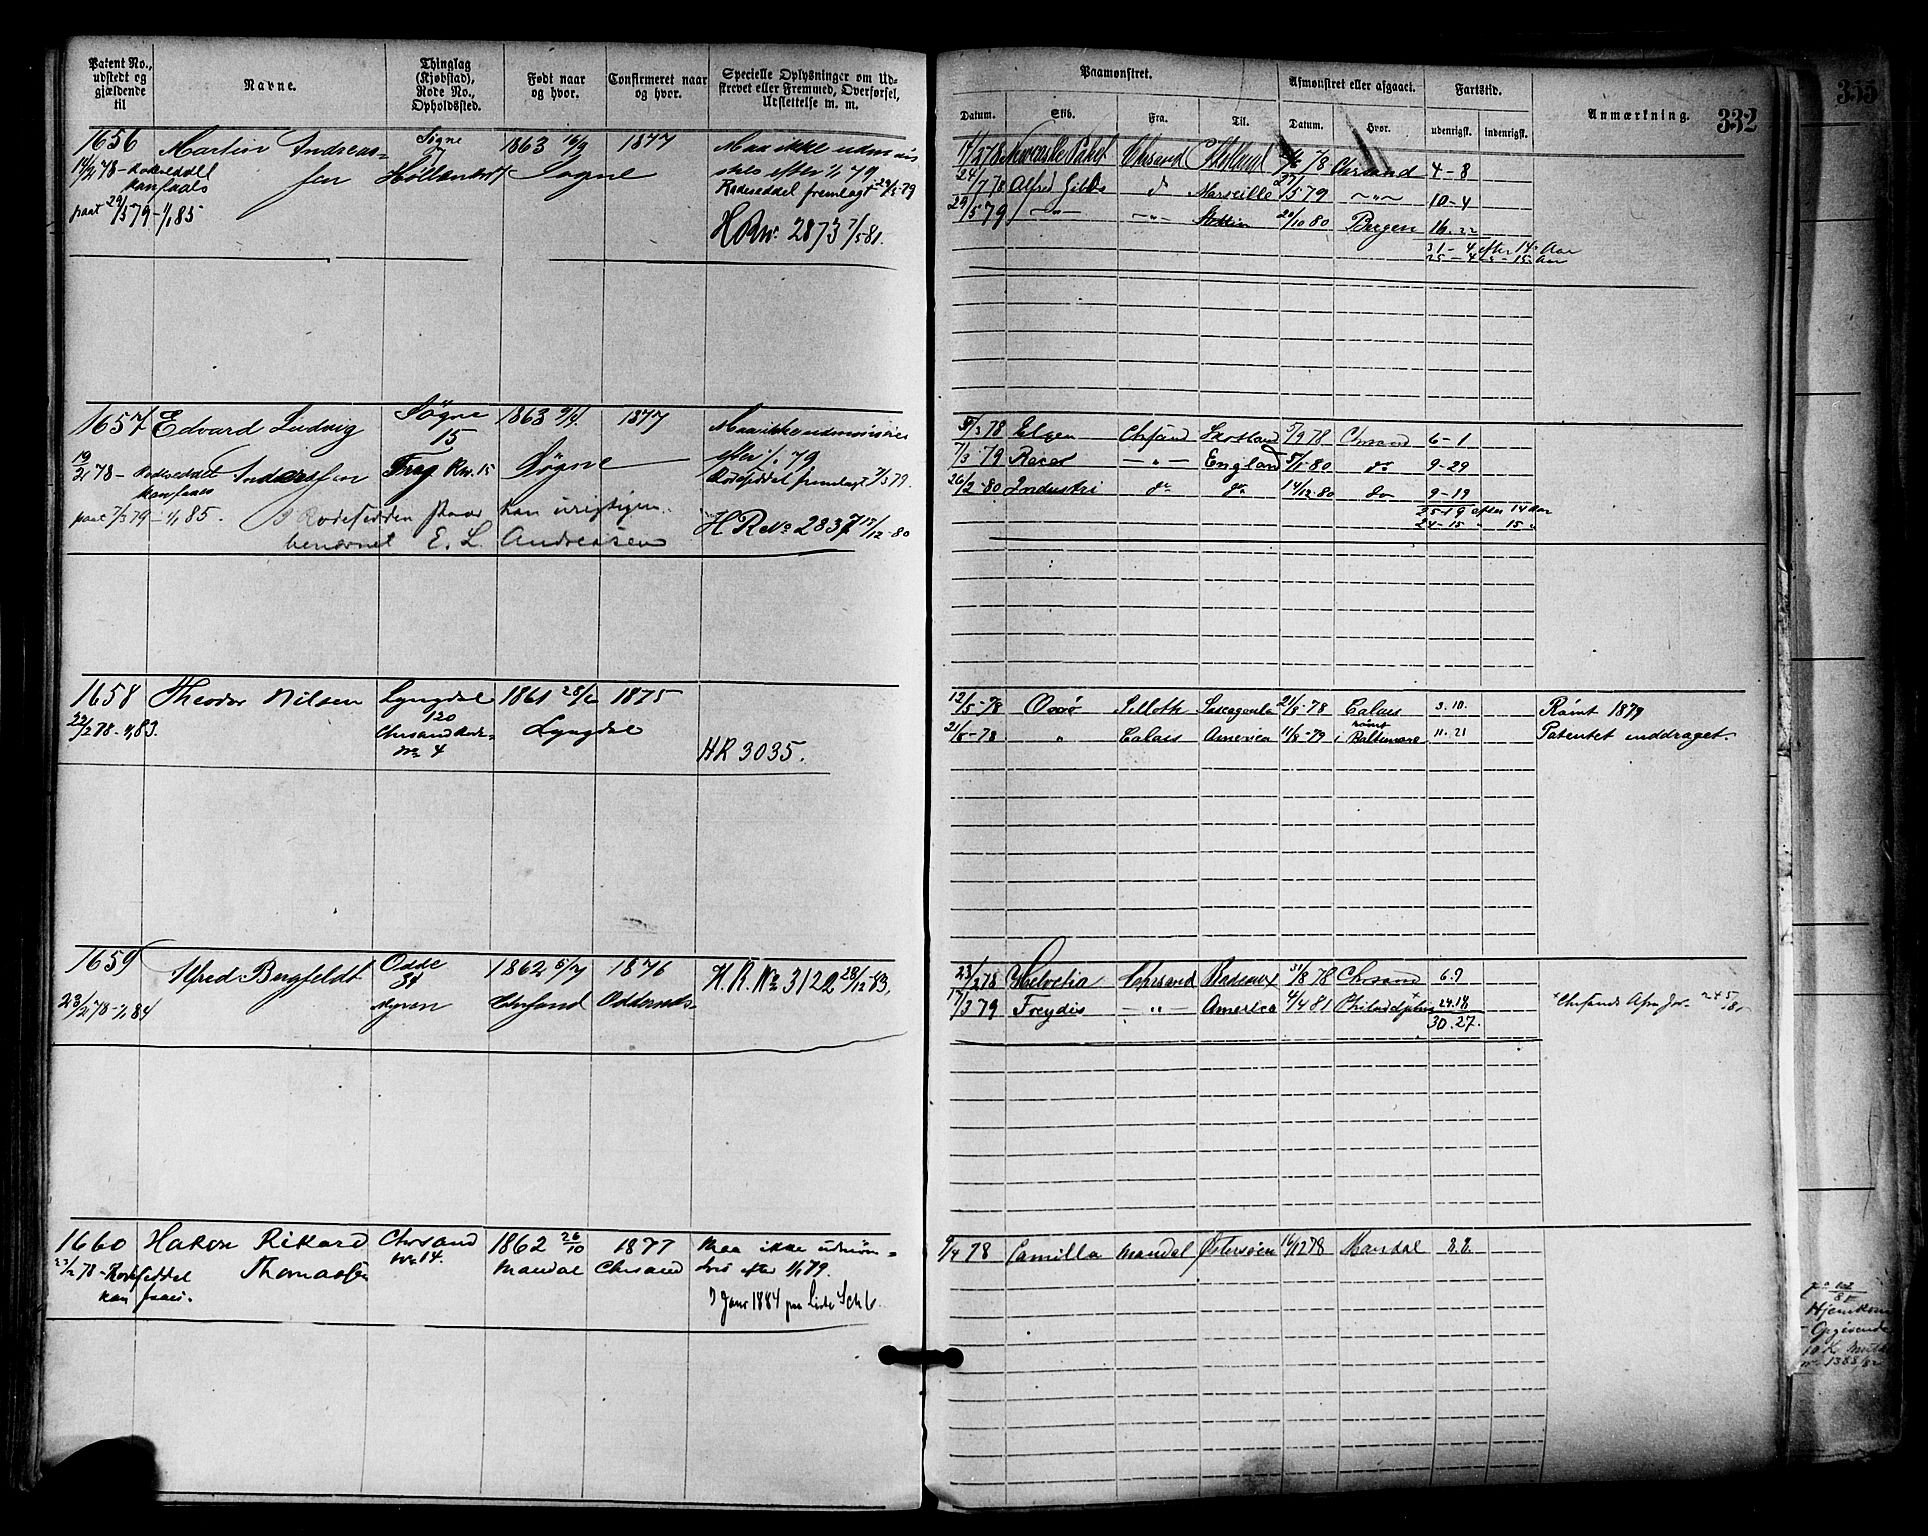 Patent No., udstedt og gjældende til
Navne.
Thinglag (Kjøbstad), Rode No., Opholdssted.
Født naar og hvor.
Confirmeret naar og hvor.
Specielle Oplysninger om Udskrevet eller Fremmed, Overførsel, Udslettelse m. m.
Paamønstret.
Datum. Skib. Fra. Til.
Afmønstret eller afgaaet.
Datum. Hvor.
Fartstid.
udenrigsk. indenrigsk.
Anmærkning.
332
355
1656 Martin Andreas-
sen
14/2 78 - Rodeseddel
kan faaes
paat 29/5 79 - 1/1 85
Søgne
7
1863 16/9 1877
Søgne
Maa ikke udmøn
stres efter 1/1 79
Rodeseddel fremlagt 29/5 79
H R No. 2873 7/5 81.
14/2 78 Chrsand 78 Chrsand 4-8
24/7 78 Alfred Gibbs do Marseille 27/5 79 -"- 10-4
29/5 79 -"- -"- Stettin 20/10 80 Bergen 16.22
31-4 efter 14 Aar
25-4 -"- 15 Aar
1657 Edvard Ludvig
Anderssen
19/2 78 - Rodeseddel
kan faaes
paat 7/3 79 - 1/1 85.
I Rodesedden staar han urigtigen
benævnet E. L. Andreasen
Søgne
15
Trag Rno. 15
1863 1877
Søgne
Maa ikke udmønstres
efter 1/1 79
Rodeseddel fremlagt 7/3 79.
H R No 2837 17/12 80
5/3 78 Elgen Chrsand Skotland 5/9 78 Chrsand 6-1
7/3 79 Racer -"- England 5/1 80 do 9-29
26/2 80 Industri do do 14/12 80 do 9-19
25-19 efter 14 Aar
24-15 " 15 "
1658 Theodor Nilsen
22/2 78 - 1/1 83.
Lyngdal
120
Chrsand Rode
No 4
1861 28/6 1875
Lyngdal
HR 3035.
12/5 78 Silloth Pascagoula 21/8 78 Calais 3.10. Rømt 1879
21/8 78 " Calais America 11/8 79 rømt i Baltimore 11.21 Patentet inddraget.
1659 Alfred Bergfeldt
23/2 78 - 1/1 84
Odde
34
Myren
1862 5/7 1876
Chrsand Oddernes
H. R. No 3122 28/12 83.
23/2 78 Helvetia Chrsand Bordeaux 31/8 78 Chrsand 6.9
17/3 79 Freydis -"- America 4/4 81 Philadelphia + 24.18
30.27.
+ Chrsands Afm Jor. 24 5/81
1660 Hakon Rikard
Thomassen
23/2 78 - Rodeseddel
kan faaes.
Chrsand
No 14.
1862 26/10 1877
Mandal Chrsand
Maa ikke udmøn-
stres efter 1/1 79.
7 Janr 1884 paa Liste Sch 6.
9/4 78 Camilla Mandal Østersøen 16/12 78 Mandal 8.8.
Hjemkom
Opgivende
10 K Mulkt
No 1388/82